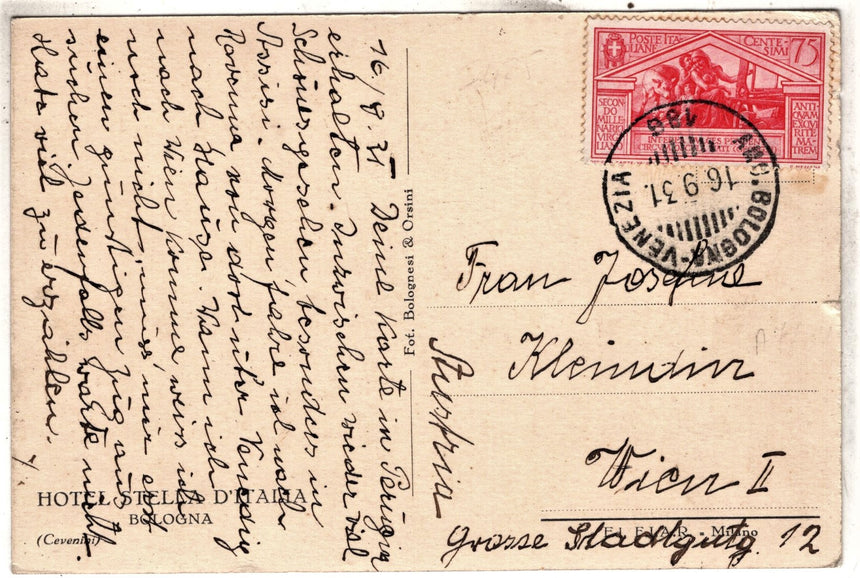 16/9.31 Deine Karte in Perugia
erhalten. Inzwischen wieder viel
Schönes gesehen besonders in
Assisi. Morgen fahre ich nach
Ravenna von dort über Venedig
nach Hause. Wann ich
nach Wien komme weis ich
noch nicht, muss mir erst
einen günstigen Zug aus
suchen. Jedenfalls warte nicht.
Habe viel zu erzählen.
HOTEL STELLA D'ITALIA
BOLOGNA
(Cevenini)
Fot. Bolognesi & Orsini
POSTE ITA
LIANE
CENTE
SIMI
75
SECON
DO MILLE
NARIO
VIRGI
LIANO
ANTI
QVAM
EXQVI
RITE
MA
TREM
AMB. BOLOGNA-VENEZIA
16.9.31.
Frau Josefine
Wien II
Grosse Stadtgutg. 12
Austria
Milano